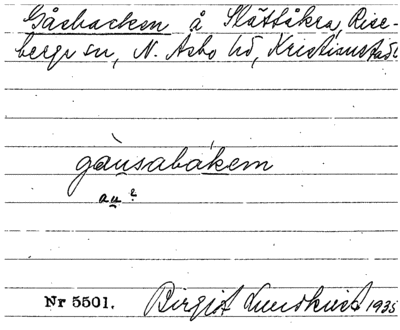 Gåsbacken å Slättåkra, Rise-
berga sn, N. Åsbo hd, Kristianstads
gàusabàkem
au ?
Nr 5501. Birgit Lundkvist 1935